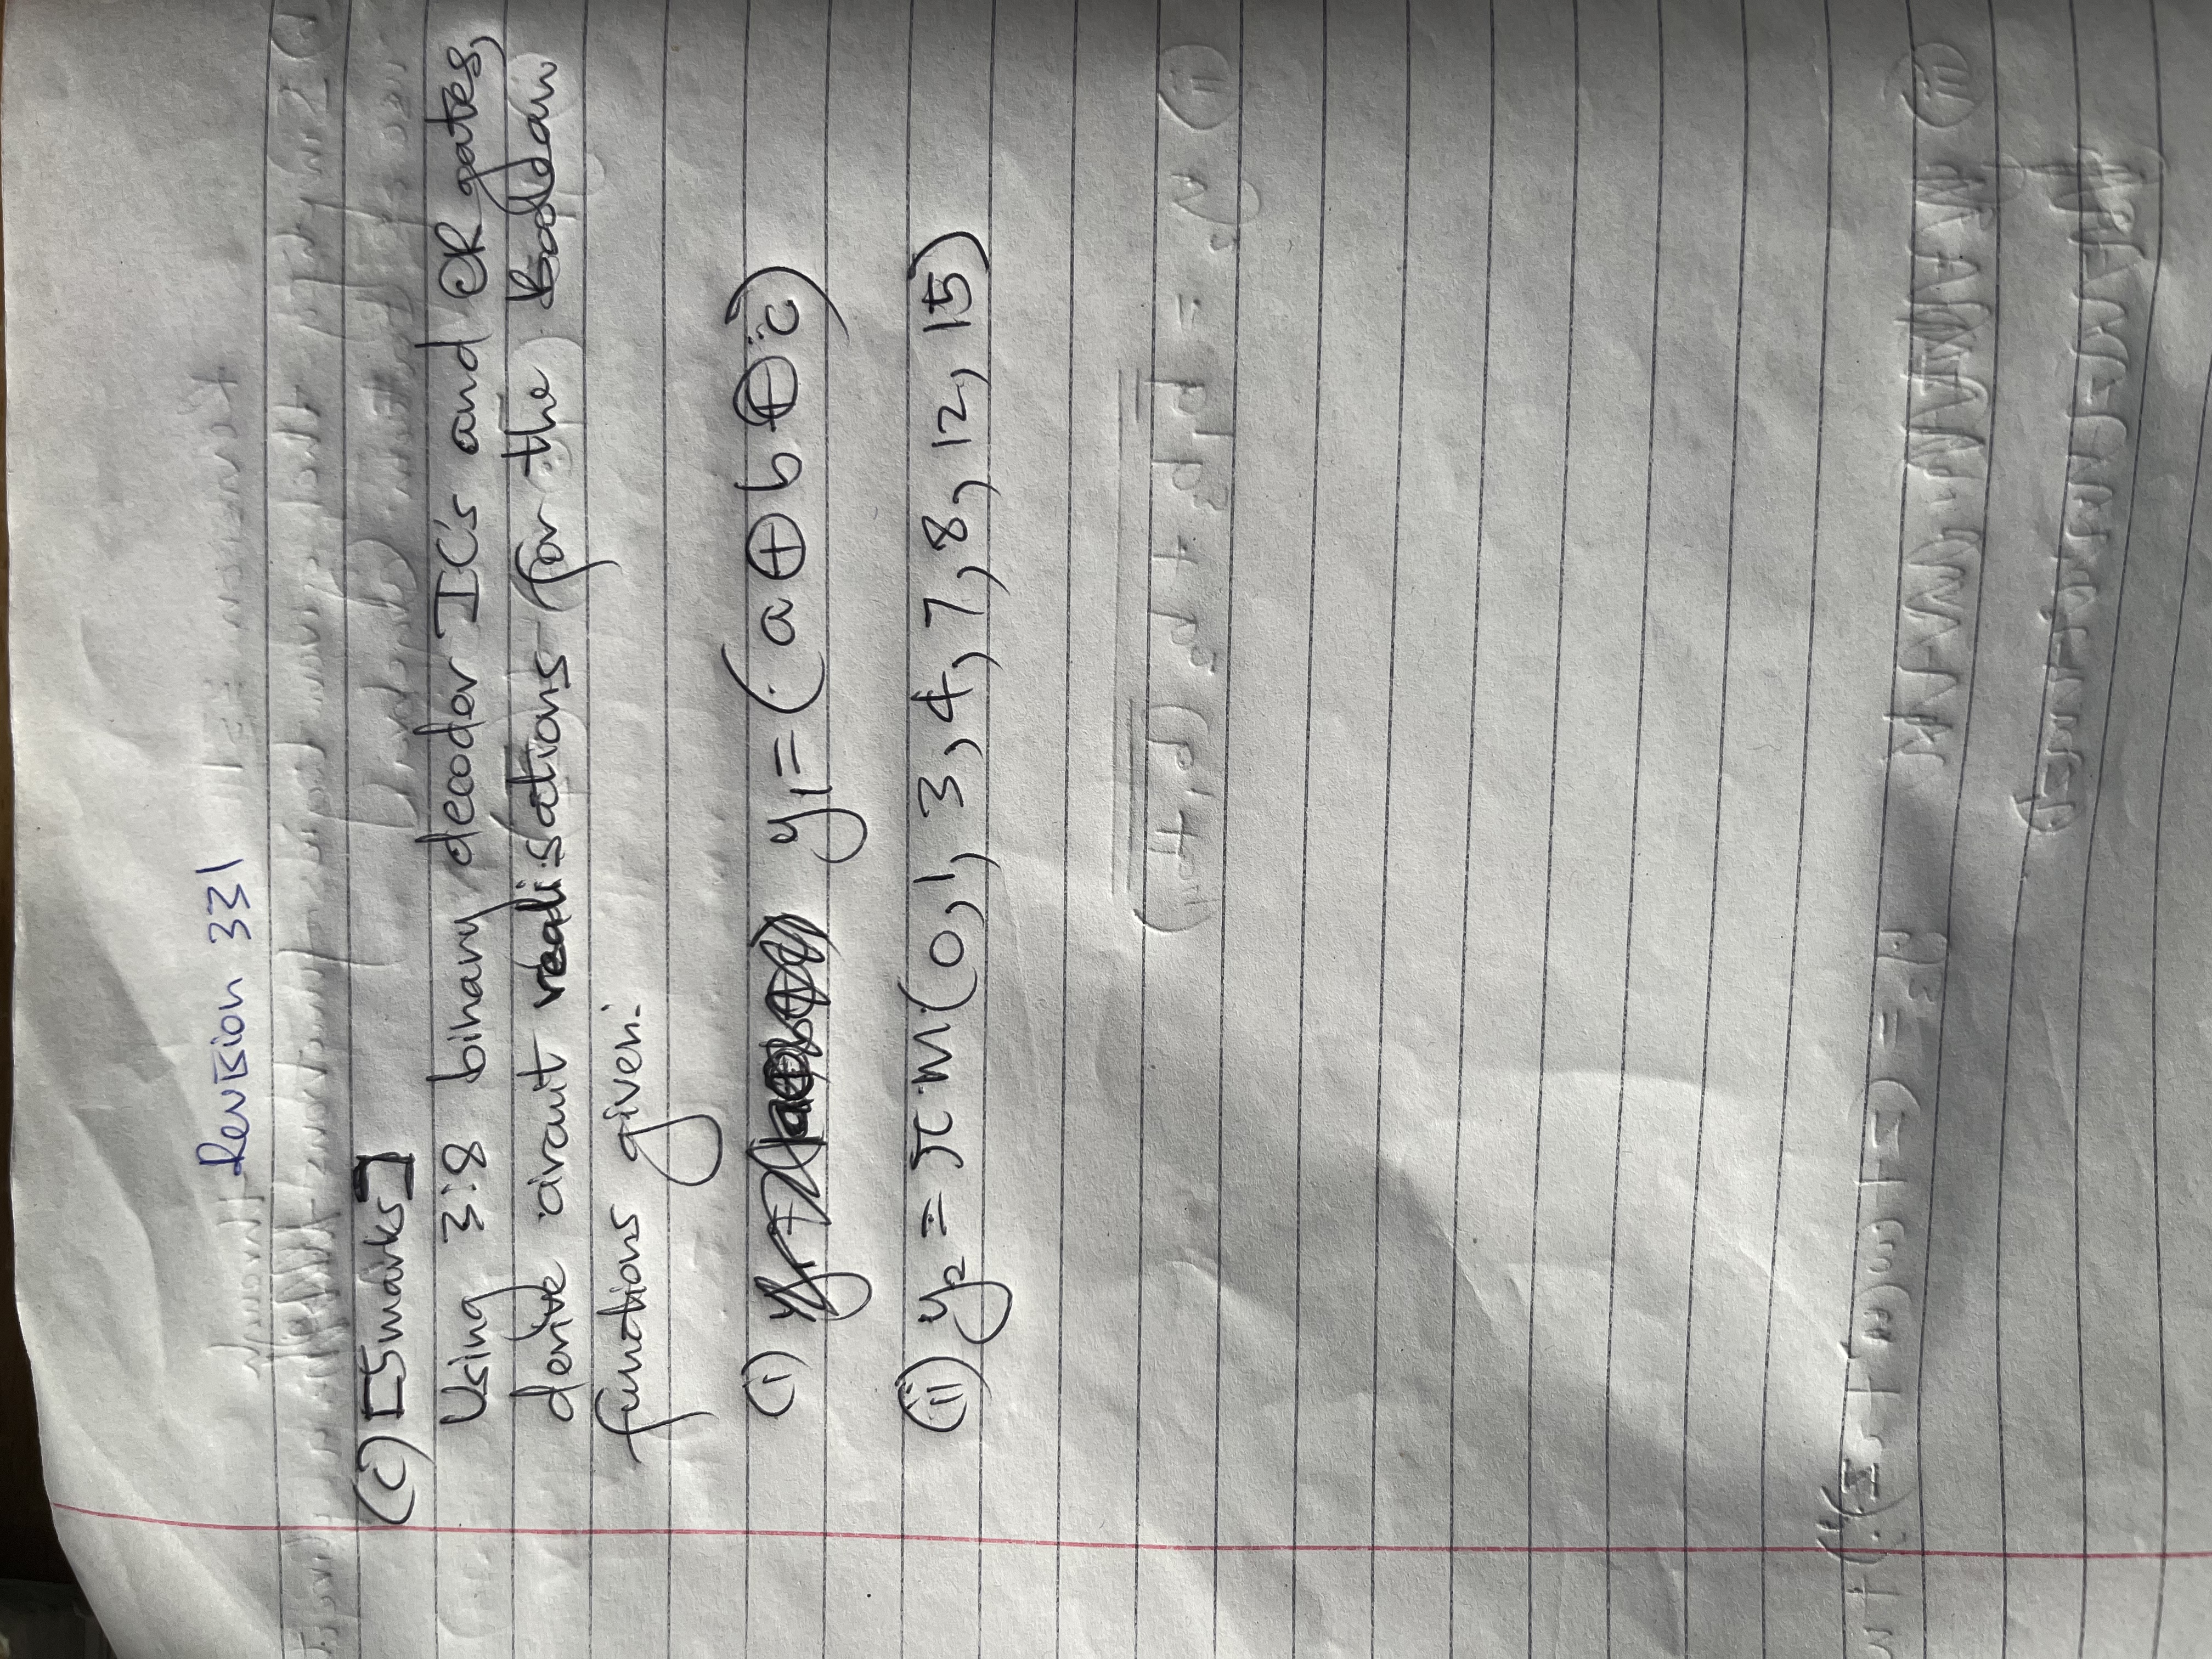 Revision 331
(c) [5marks]
Using 3:8 binary decoder IC's and OR gates,
derive circuit realisations for the Boolean
functions given:
(i) y₁ = (a ⊕ b ⊕ c)
(ii) y₂ = π m(0,1,3,4,7,8,12,15)